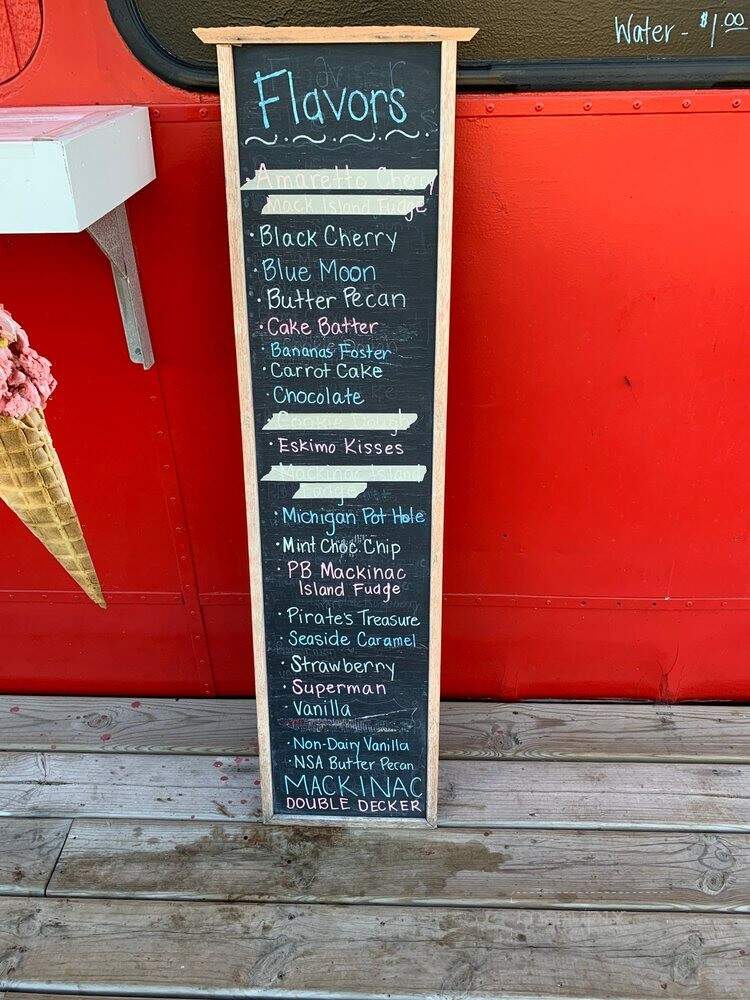 Water - $1.00
Flavors
· Amaretto Cherry
Mack Island Fudge
· Black Cherry
· Blue Moon
· Butter Pecan
· Cake Batter
· Bananas Foster
· Carrot Cake
· Chocolate
· Cookie Dough
· Eskimo Kisses
· Mackinac Island
Fudge
· Michigan Pot Hole
· Mint Choc. Chip
· PB Mackinac
Island Fudge
· Pirate's Treasure
· Seaside Caramel
· Strawberry
· Superman
· Vanilla
· Non-Dairy Vanilla
· NSA Butter Pecan
MACKINAC
DOUBLE DECKER